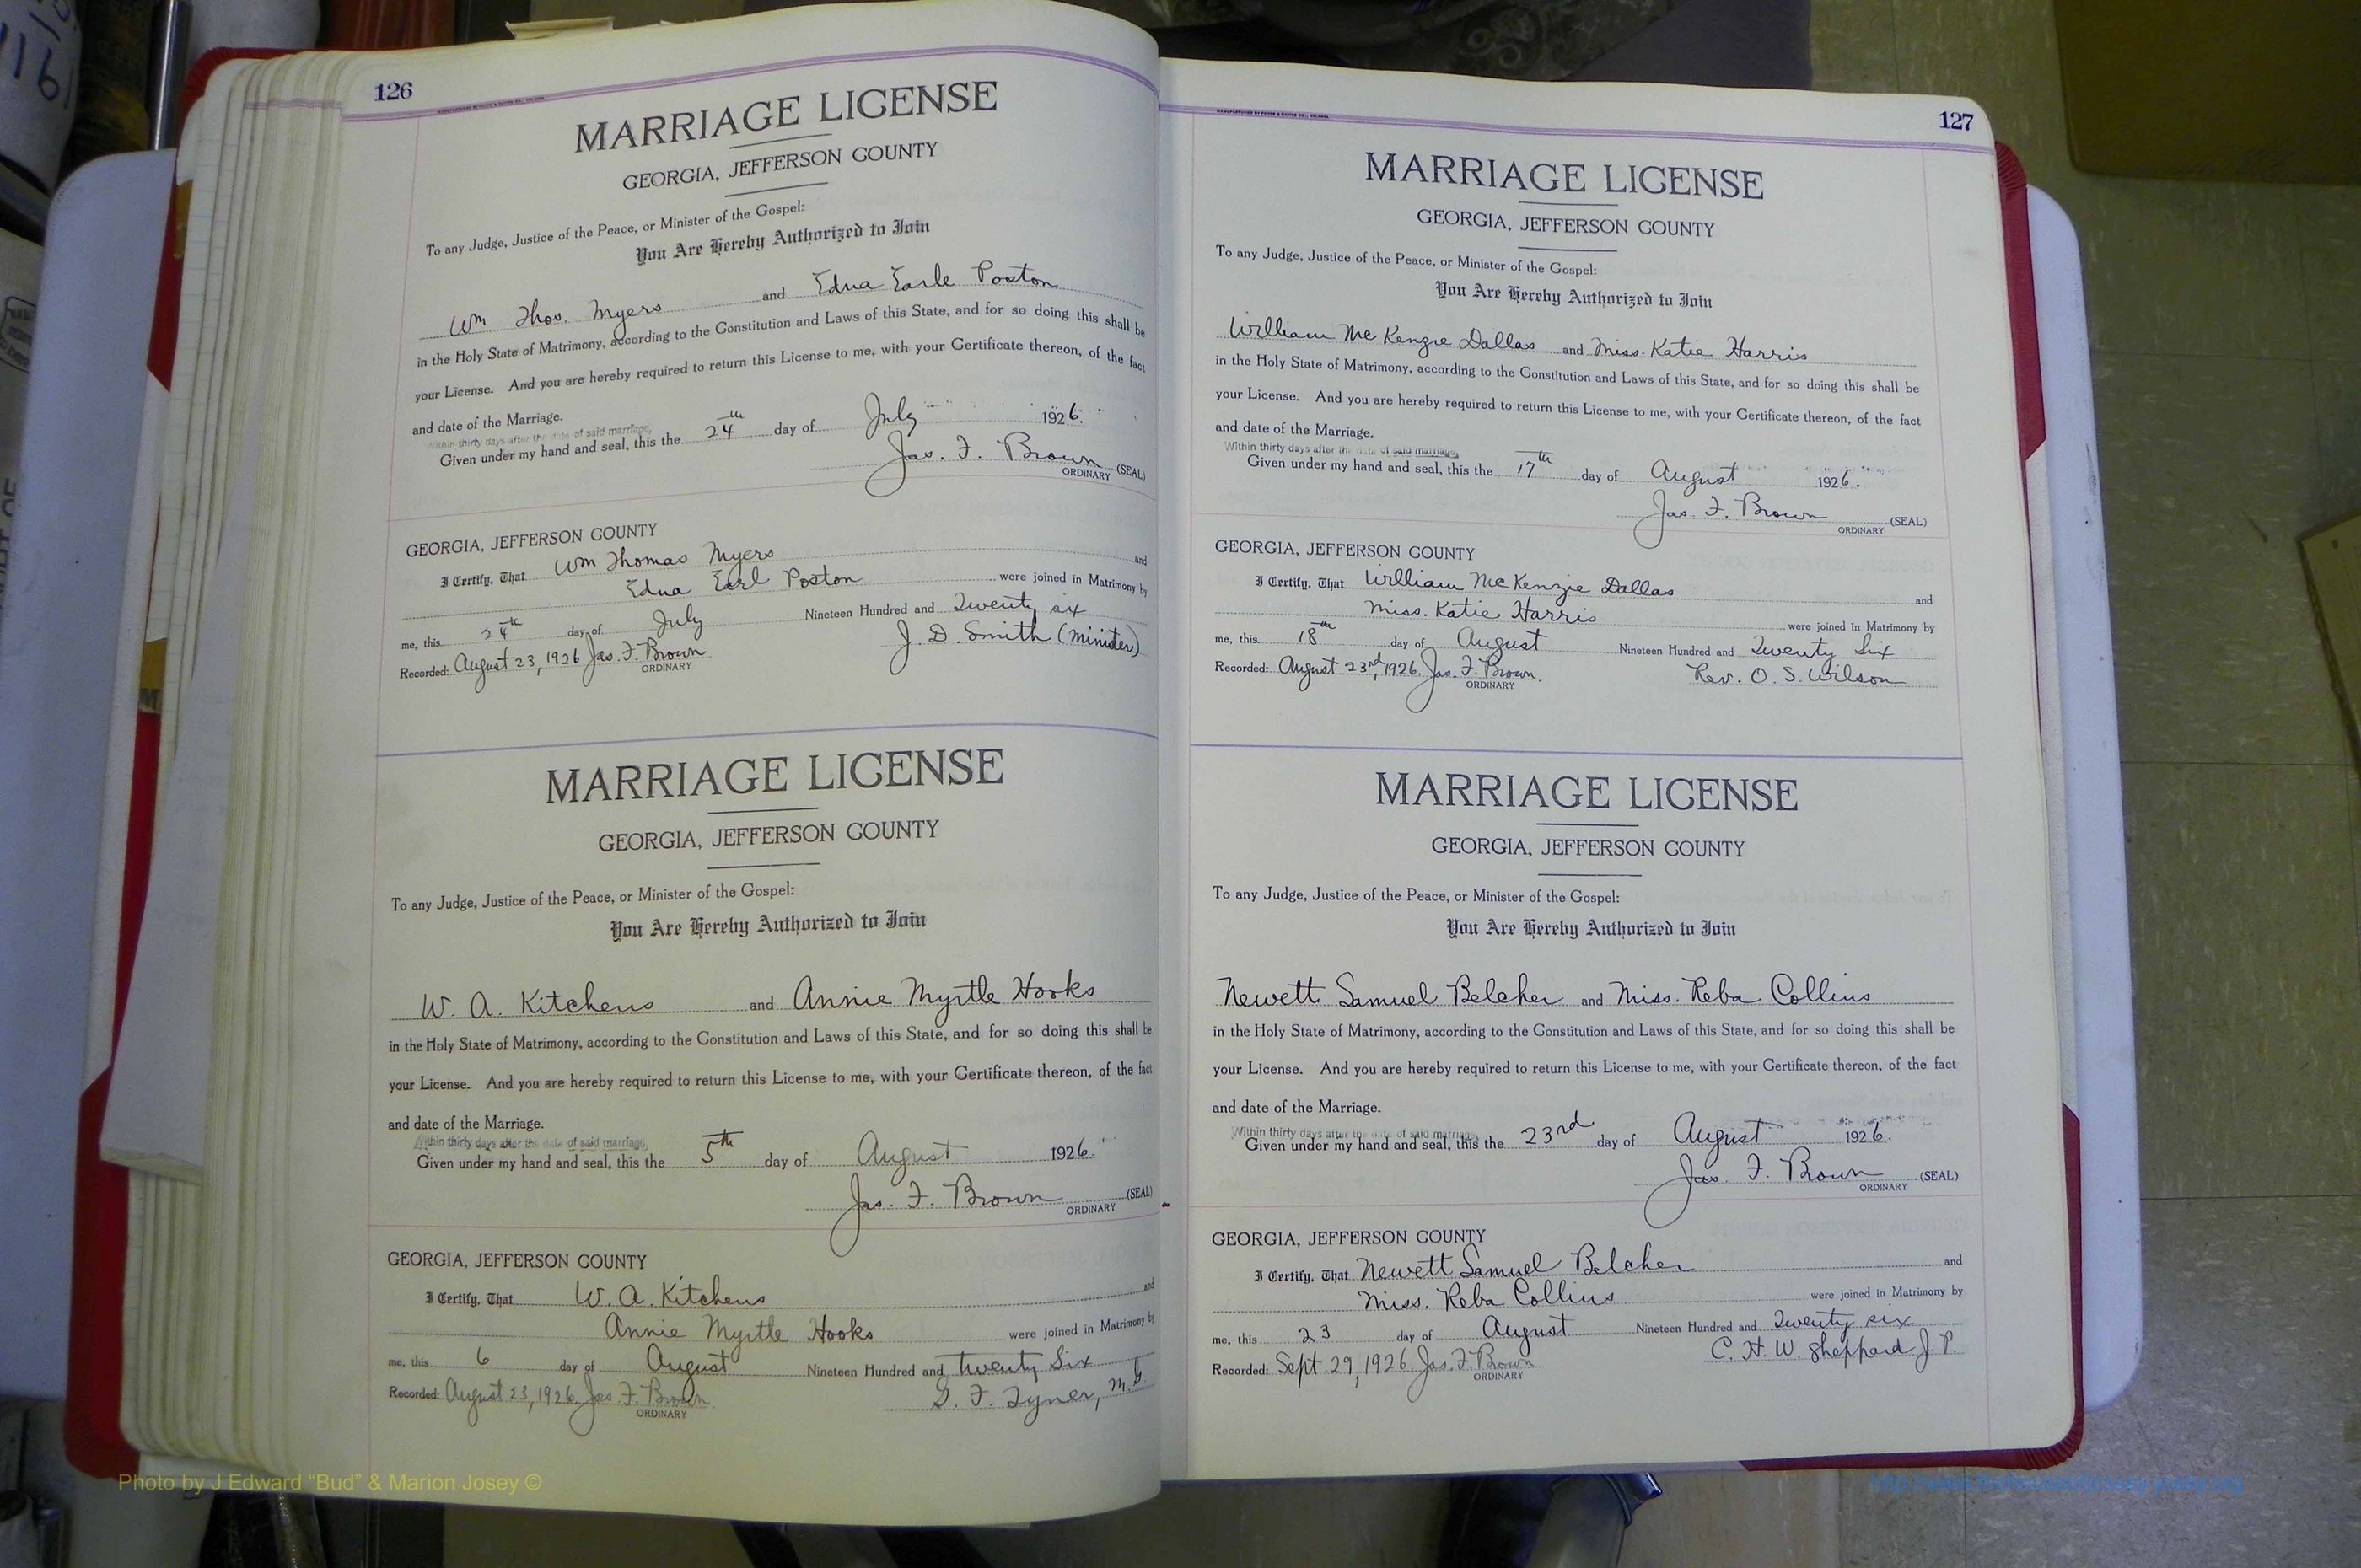 126
MARRIAGE LICENSE
GEORGIA, JEFFERSON COUNTY
To any Judge, Justice of the Peace, or Minister of the Gospel:
You Are Hereby Authorized to Join
Wm Thos. Myers and Edna Earle Poston
in the Holy State of Matrimony, according to the Constitution and Laws of this State, and for so doing this shall be
your License. And you are hereby required to return this License to me, with your Certificate thereon, of the fact
and date of the Marriage.
Within thirty days after the date of said marriage,
Given under my hand and seal, this the 24th day of July 1926.
Jas. F. Brown (SEAL)
ORDINARY
GEORGIA, JEFFERSON COUNTY
I Certify, That Wm Thomas Myers and
Edna Earl Poston were joined in Matrimony by
me, this 24th day of July Nineteen Hundred and Twenty six
Recorded: August 23, 1926 Jas. F. Brown J. D. Smith (Minister)
ORDINARY
MARRIAGE LICENSE
GEORGIA, JEFFERSON COUNTY
To any Judge, Justice of the Peace, or Minister of the Gospel:
You Are Hereby Authorized to Join
W. A. Kitchens and Annie Myrtle Hooks
in the Holy State of Matrimony, according to the Constitution and Laws of this State, and for so doing this shall be
your License. And you are hereby required to return this License to me, with your Certificate thereon, of the fact
and date of the Marriage.
Within thirty days after the date of said marriage,
Given under my hand and seal, this the 5th day of August 1926.
Jas. F. Brown (SEAL)
ORDINARY
GEORGIA, JEFFERSON COUNTY
I Certify, That W. A. Kitchens and
Annie Myrtle Hooks were joined in Matrimony by
me, this 6 day of August Nineteen Hundred and twenty Six
Recorded: August 23, 1926 Jas. F. Brown S. F. Tyner, M.G.
ORDINARY
127
MARRIAGE LICENSE
GEORGIA, JEFFERSON COUNTY
To any Judge, Justice of the Peace, or Minister of the Gospel:
You Are Hereby Authorized to Join
William McKenzie Dallas and Miss. Katie Harris
in the Holy State of Matrimony, according to the Constitution and Laws of this State, and for so doing this shall be
your License. And you are hereby required to return this License to me, with your Certificate thereon, of the fact
and date of the Marriage.
Within thirty days after the date of said marriage,
Given under my hand and seal, this the 17th day of August 1926.
Jas. F. Brown (SEAL)
ORDINARY
GEORGIA, JEFFERSON COUNTY
I Certify, That William McKenzie Dallas and
Miss. Katie Harris were joined in Matrimony by
me, this 18th day of August Nineteen Hundred and Twenty Six
Recorded: August 23rd, 1926. Jas. F. Brown. Rev. O. S. Wilson
ORDINARY
MARRIAGE LICENSE
GEORGIA, JEFFERSON COUNTY
To any Judge, Justice of the Peace, or Minister of the Gospel:
You Are Hereby Authorized to Join
Newett Samuel Belcher and Miss. Reba Collins
in the Holy State of Matrimony, according to the Constitution and Laws of this State, and for so doing this shall be
your License. And you are hereby required to return this License to me, with your Certificate thereon, of the fact
and date of the Marriage.
Within thirty days after the date of said marriage,
Given under my hand and seal, this the 23rd day of August 1926.
Jas. F. Brown (SEAL)
ORDINARY
GEORGIA, JEFFERSON COUNTY
I Certify, That Newett Samuel Belcher and
Miss. Reba Collins were joined in Matrimony by
me, this 23 day of August Nineteen Hundred and Twenty six
Recorded: Sept 29, 1926. Jas. F. Brown C. H. W. Sheppard J P.
ORDINARY
Photo by J Edward “Bud” & Marion Josey ©